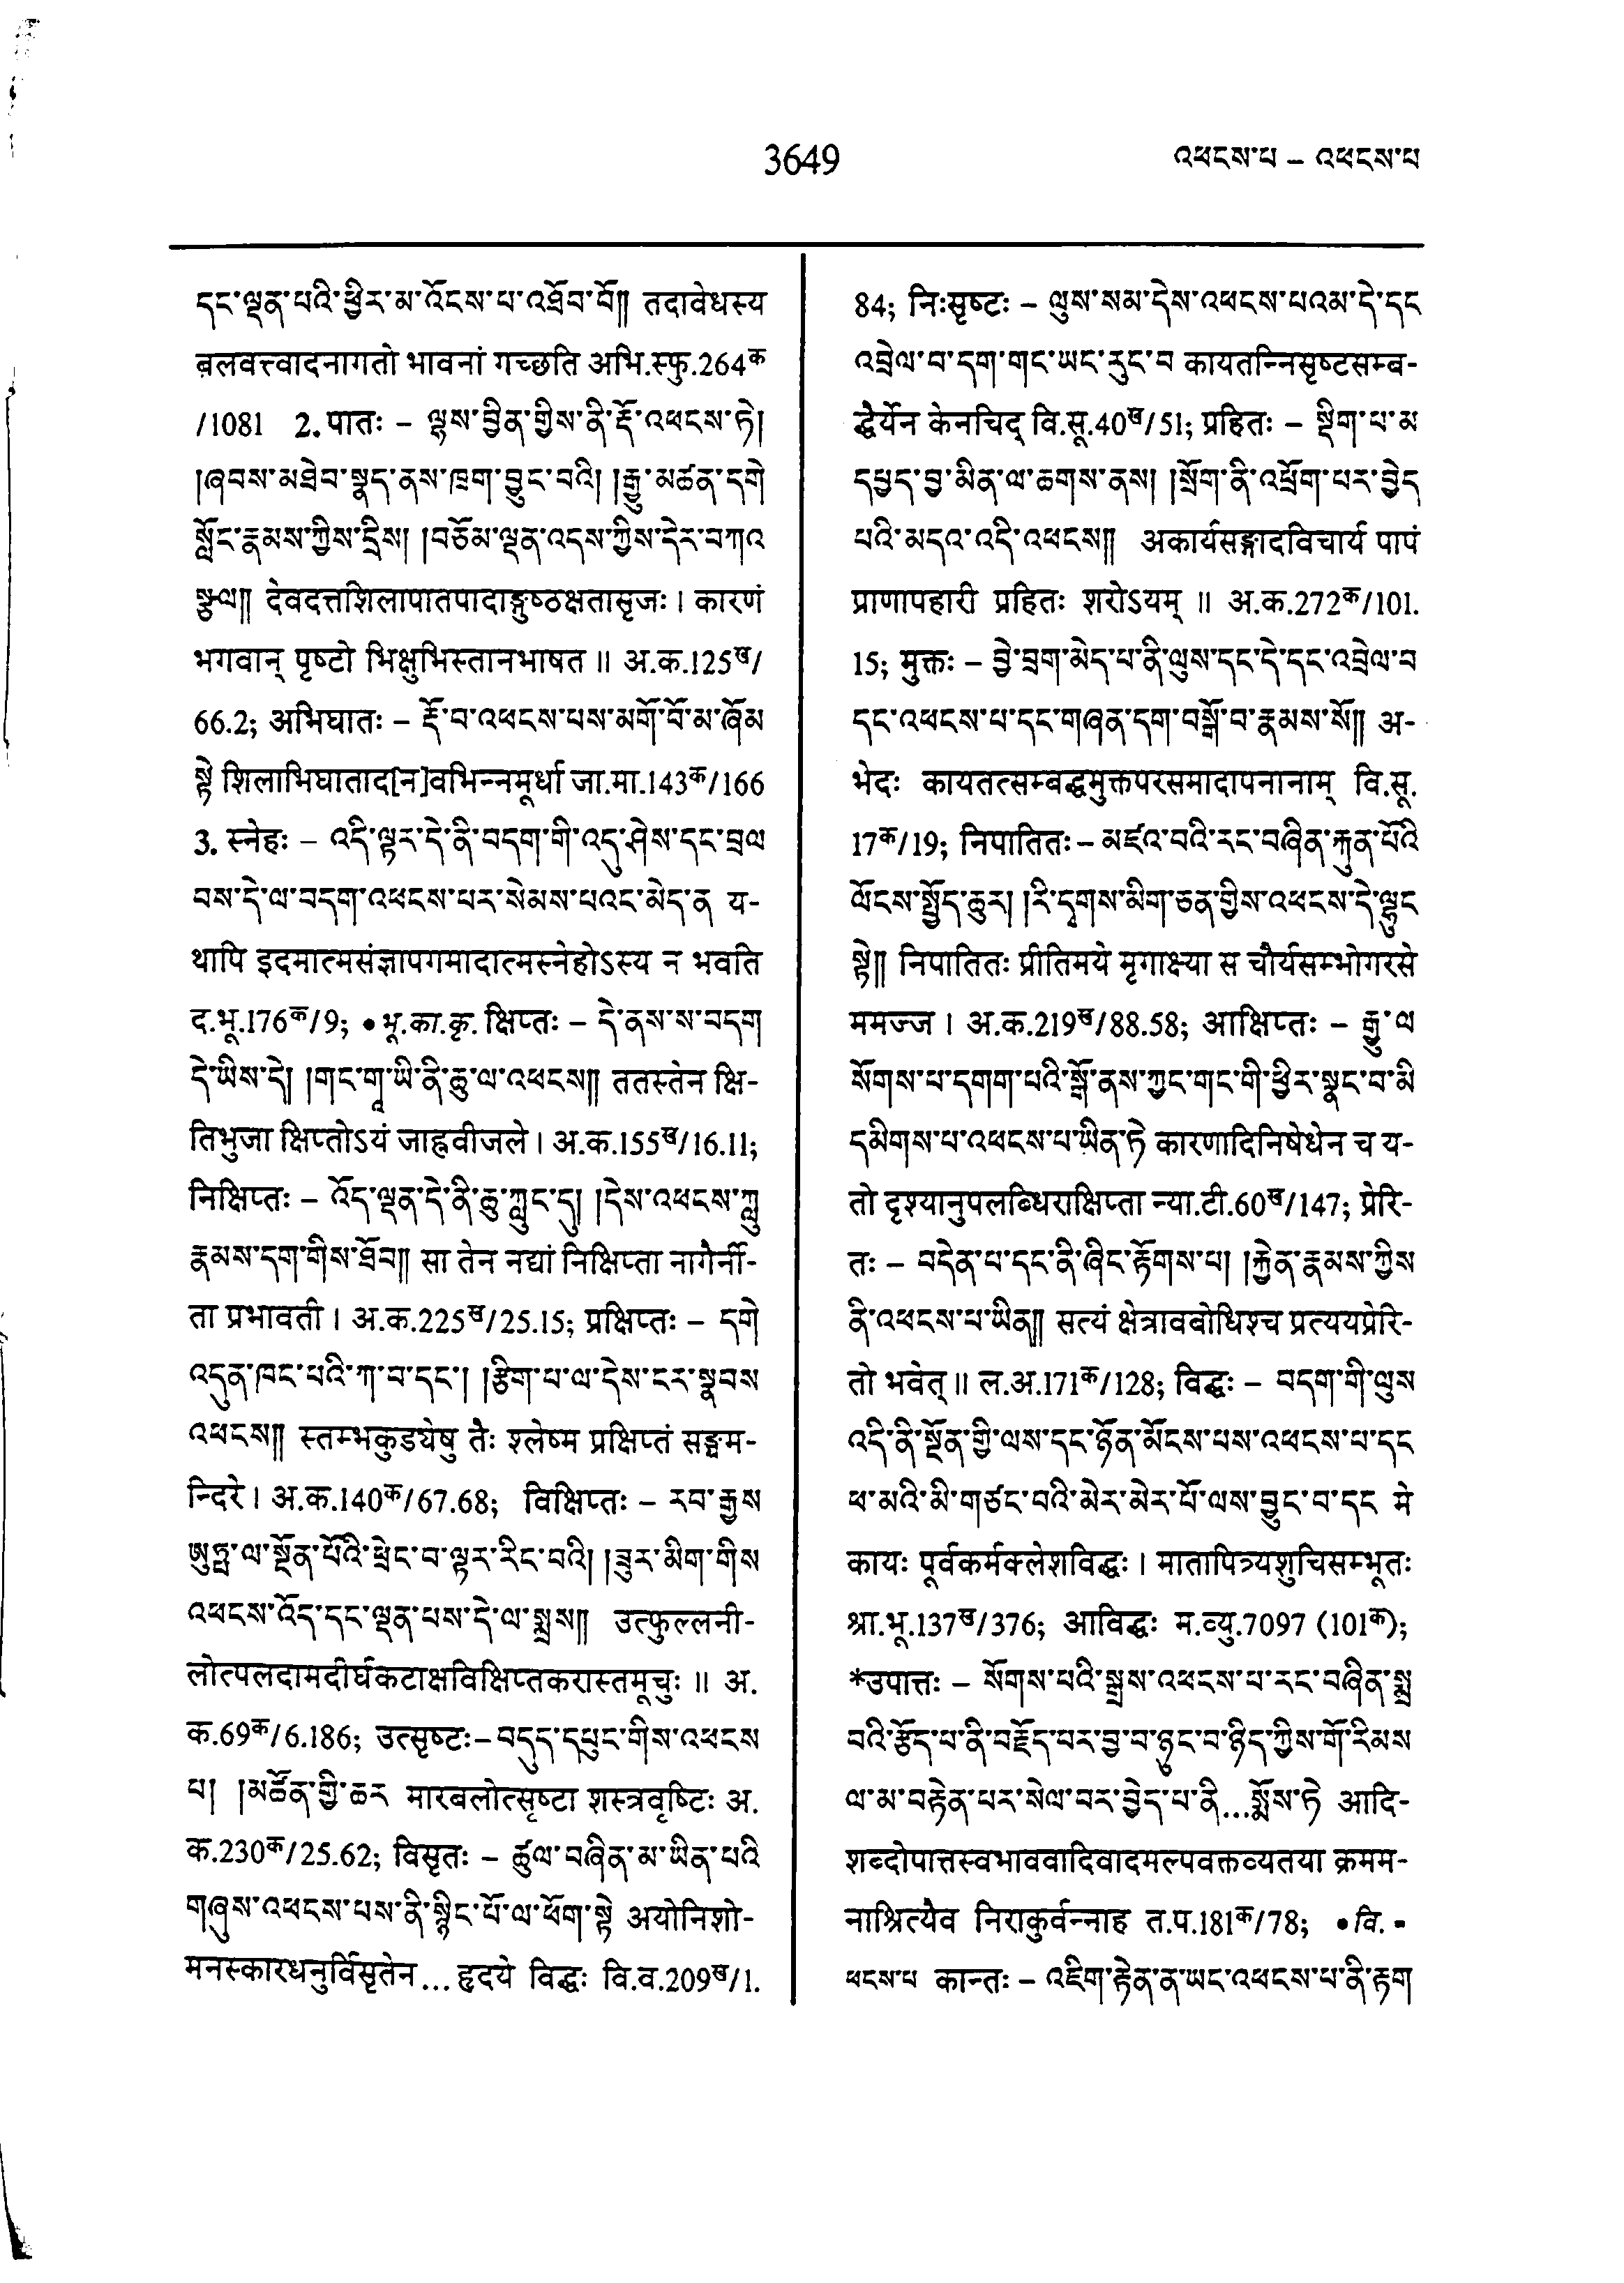 3649
འཕངས་པ – འཕངས་པ
དང་ལྡན་པའི་ཕྱིར་མ་འོངས་པ་འཐོབ་བོ༎ तदावेधस्य
बलवत्त्वादनागतो भावनां गच्छति अभि.स्फु.264क
/1081 2. पातः – ལྷས་བྱིན་གྱིས་ནི་རྡོ་འཕངས་ཏེ།
།ཞབས་མཐེབ་སྣད་ནས་ཁྲག་བྱུང་བའི། །རྒྱུ་མཚན་དགེ
སློང་རྣམས་ཀྱིས་དྲིས། །བཅོམ་ལྡན་འདས་ཀྱིས་དེར་བཀའ
སྩལ༎ देवदत्तशिलापातपादाङ्गुष्ठक्षतासृजः । कारणं
भगवान् पृष्टो भिक्षुभिस्तानभाषत ॥ अ.क.125ख/
66.2; अभिघातः – རྡོ་བ་འཕངས་པས་མགོ་བོ་མ་ཞོམ
སྟེ शिलाभिघाताद[न]वभिन्नमूर्धा जा.मा.143क/166
3. स्नेहः – འདི་ལྟར་དེ་ནི་བདག་གི་འདུ་ཤེས་དང་བྲལ
བས་དེ་ལ་བདག་འཕངས་པར་སེམས་པའང་མེད་ན य-
थापि इदमात्मसंज्ञापगमादात्मस्नेहोऽस्य न भवति
द.भू.176क/9; • भू.का.कृ. क्षिप्तः – དེ་ནས་ས་བདག
དེ་ཡིས་དེ། །གང་གཱ་ཡི་ནི་ཆུ་ལ་འཕངས༎ ततस्तेन क्षि-
तिभुजा क्षिप्तोऽयं जाह्नवीजले । अ.क.155ख/16.11;
निक्षिप्तः – འོད་ལྡན་དེ་ནི་ཆུ་ཀླུང་དུ། །དེས་འཕངས་ཀླུ
རྣམས་དག་གིས་ཐོབ༎ सा तेन नद्यां निक्षिप्ता नागैर्नी-
ता प्रभावती । अ.क.225ख/25.15; प्रक्षिप्तः – དགེ
འདུན་ཁང་པའི་ཀ་བ་དང་། །རྩིག་པ་ལ་དེས་ངར་སྣབས
འཕངས༎ स्तम्भकुड्येषु तैः श्लेष्म प्रक्षिप्तं सङ्घम-
न्दिरे । अ.क.140क/67.68; विक्षिप्तः – རབ་རྒྱས
ཨུཏྤ་ལ་སྔོན་པོའི་ཕྲེང་བ་ལྟར་རིང་བའི། །ཟུར་མིག་གིས
འཕངས་འོད་དང་ལྡན་པས་དེ་ལ་སྨྲས༎ उत्फुल्लनी-
लोत्पलदामदीर्घकटाक्षविक्षिप्तकरास्तमूचुः ॥ अ.
क.69क/6.186; उत्सृष्टः – བདུད་དཔུང་གིས་འཕངས
པ། །མཚོན་གྱི་ཆར मारबलोत्सृष्टा शस्त्रवृष्टिः अ.
क.230क/25.62; विसृतः – ཚུལ་བཞིན་མ་ཡིན་པའི
གཞུས་འཕངས་པས་ནི་སྙིང་པོ་ལ་ཕོག་སྟེ अयोनिशो-
मनस्कारधनुर्विसृतेन... हृदये विद्धः वि.व.209ख/1.
84; निःसृष्टः – ལུས་སམ་དེས་འཕངས་པའམ་དེ་དང
འབྲེལ་བ་དག་གང་ཡང་རུང་བ कायतन्निसृष्टसम्ब-
द्धैर्येन केनचिद् वि.सू.40ख/51; प्रहितः – སྡིག་པ་མ
དཔྱད་བྱ་མིན་ལ་ཆགས་ནས། །སྲོག་ནི་འཕྲོག་པར་བྱེད
པའི་མདའ་འདི་འཕངས༎ अकार्यसङ्गादविचार्य पापं
प्राणापहारी प्रहितः शरोऽयम् ॥ अ.क.272क/101.
15; मुक्तः – བྱེ་བྲག་མེད་པ་ནི་ལུས་དང་དེ་དང་འབྲེལ་བ
དང་འཕངས་པ་དང་གཞན་དག་བསྒོ་བ་རྣམས་སོ༎ अ-
भेदः कायतत्सम्बद्धमुक्तपरसमादापनानाम् वि.सू.
17क/19; निपातितः – མཛའ་བའི་རང་བཞིན་རྐུན་པོའི
ལོངས་སྤྱོད་ཆུར། །རི་དྭགས་མིག་ཅན་གྱིས་འཕངས་དེ་ལྷུང
སྟེ༎ निपातितः प्रीतिमये मृगाक्ष्या स चौर्यसम्भोगरसे
ममज्ज । अ.क.219ख/88.58; आक्षिप्तः – རྒྱུ་ལ
སོགས་པ་དགག་པའི་སྒོ་ནས་ཀྱང་གང་གི་ཕྱིར་སྣང་བ་མི
དམིགས་པ་འཕངས་པ་ཡིན་ཏེ कारणादिनिषेधेन च य-
तो दृश्यानुपलब्धिराक्षिप्ता न्या.टी.60ख/147; प्रेरि-
तः – བདེན་པ་དང་ནི་ཞིང་རྟོགས་པ། །རྐྱེན་རྣམས་ཀྱིས
ནི་འཕངས་པ་ཡིན༎ सत्यं क्षेत्रावबोधिश्च प्रत्ययप्रेरि-
तो भवेत् ॥ ल.अ.171क/128; विद्धः – བདག་གི་ལུས
འདི་ནི་སྔོན་གྱི་ལས་དང་ཉོན་མོངས་པས་འཕངས་པ་དང
ཕ་མའི་མི་གཙང་བའི་མེར་མེར་པོ་ལས་བྱུང་བ་དང मे
कायः पूर्वकर्मक्लेशविद्धः । मातापित्र्यशुचिसम्भूतः
श्रा.भू.137ख/376; आविद्धः म.व्यु.7097 (101क);
*उपात्तः – སོགས་པའི་སྒྲས་འཕངས་པ་རང་བཞིན་སྨྲ
བའི་རྩོད་པ་ནི་བརྗོད་པར་བྱ་བ་ཉུང་བ་ཉིད་ཀྱིས་གོ་རིམས
ལ་མ་བརྟེན་པར་སེལ་བར་བྱེད་པ་ནི...སྨོས་ཏེ आदि-
शब्दोपात्तस्वभाववादिवादमल्पवक्तव्यतया क्रमम-
नाश्रित्यैव निराकुर्वन्नाह त.प.181क/78; • वि. -
ཕངས་པ कान्तः – འཇིག་རྟེན་ན་ཡང་འཕངས་པ་ནི་རྟག